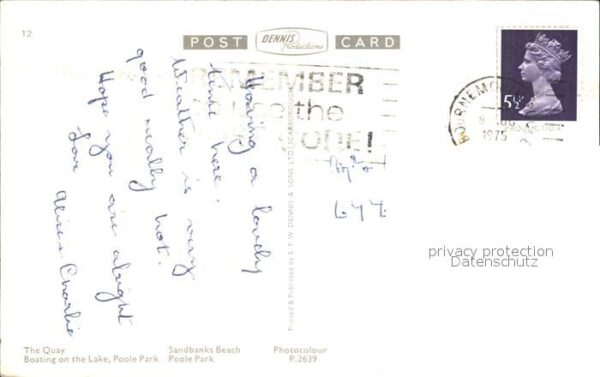 12
POST CARD
DENNIS
Productions
REMEMBER
use the
CODE!
BOURNEMOUTH
8 AUG
1975
5½
Having a lovely
time here,
Weather is very
good really hot.
Hope you are alright
Love
Charlie
Printed & Published by E. T. W. DENNIS & SONS LTD., SCARBOROUGH
privacy protection
Datenschutz
The Quay
Boating on the Lake, Poole Park
Sandbanks Beach
Poole Park
Photocolour
P.2639